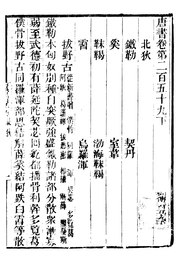 唐書卷第二百五十九下
北狄
鐵勒　契丹
奚　室韋
靺鞨　渤海靺鞨
霫　烏羅渾
拔野古
鐵勒本匈奴別種自突厥強盛鐵勒諸郡分散衆漸寡
弱至武德初有薛延陀契苾回紇都播骨利幹多覽葛
僕骨拔野古同羅渾部思結斛薛奚結阿跌白霫等散